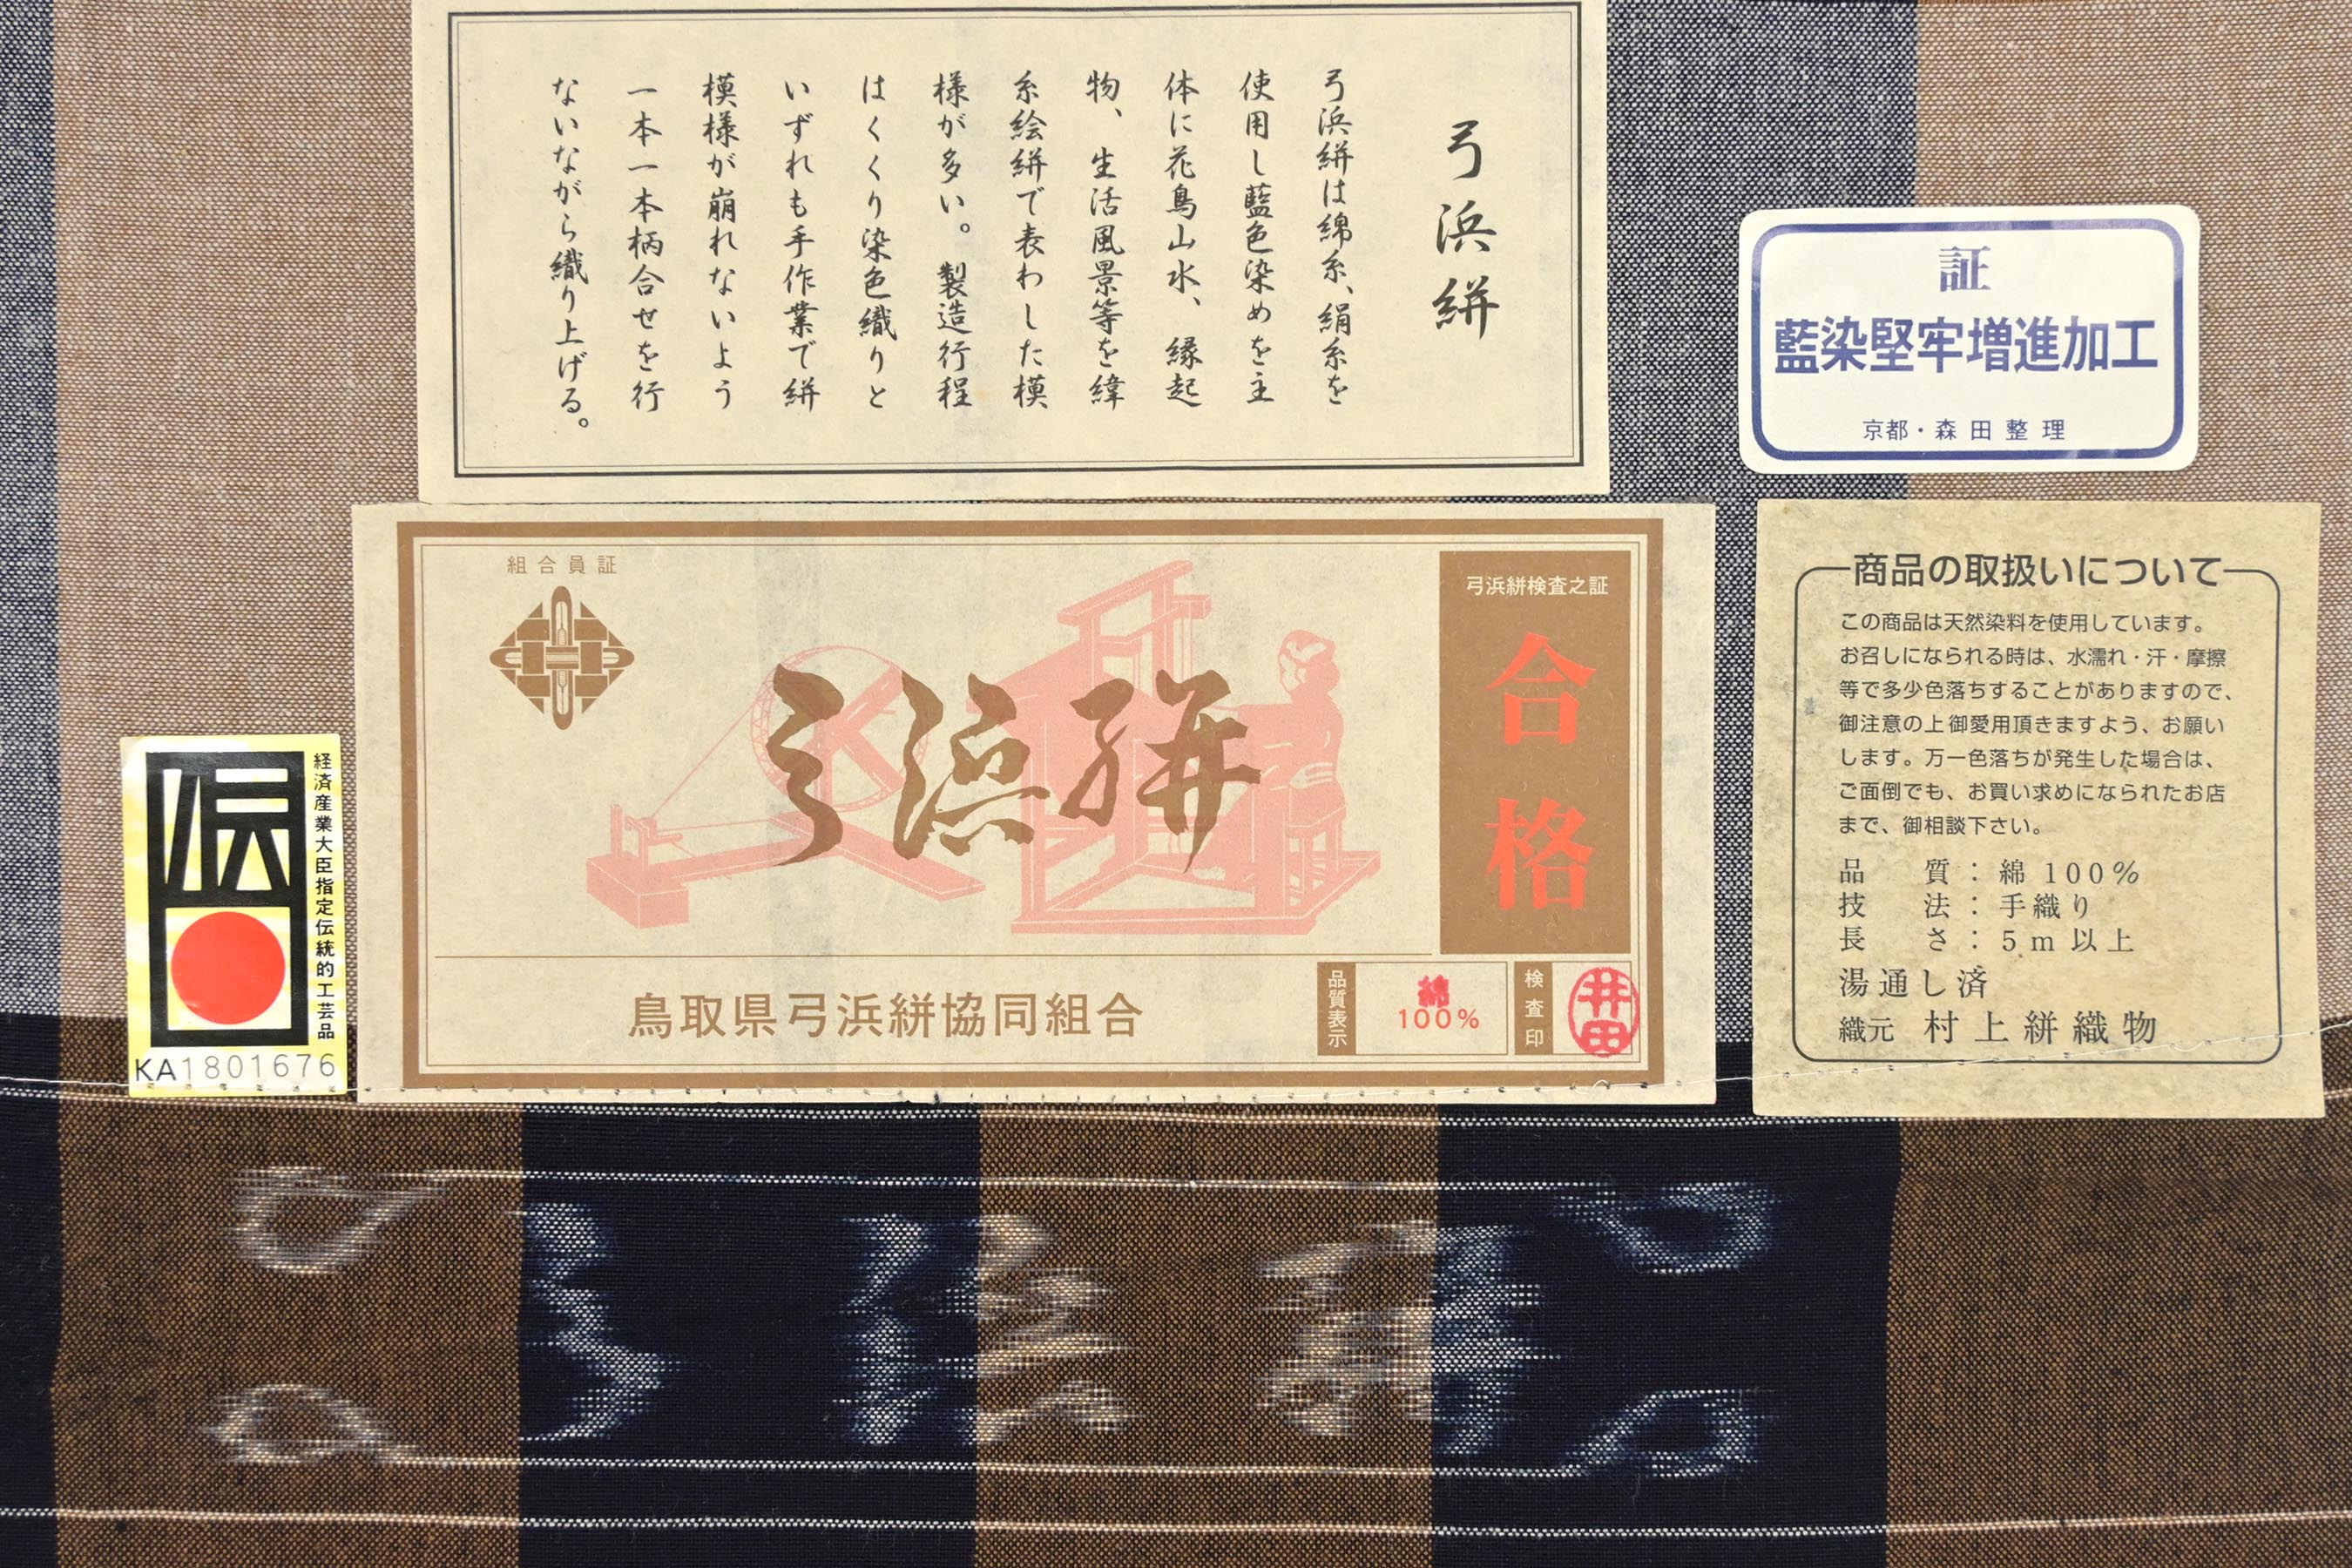 弓浜絣
弓浜絣は綿糸、絹糸を
使用し藍色染めを主
体に花鳥山水、縁起
物、生活風景等を緯
糸絵絣で表わした模
様が多い。製造行程
はくくり染色織りと
いずれも手作業で絣
模様が崩れないよう
一本一本柄合せを行
ないながら織り上げる。
証
藍染堅牢増進加工
京都・森田整理
組合員証
弓浜絣
弓浜絣検査之証
合格
鳥取県弓浜絣協同組合
品質表示
綿
100%
検査印
井田
伝
経済産業大臣指定伝統的工芸品
KA1801676
商品の取扱いについて
この商品は天然染料を使用しています。
お召しになられる時は、水濡れ・汗・摩擦
等で多少色落ちすることがありますので、
御注意の上御愛用頂きますよう、お願い
します。万一色落ちが発生した場合は、
ご面倒でも、お買い求めになられたお店
まで、御相談下さい。
品 質：綿 100%
技 法：手織り
長 さ：5m以上
湯通し済
織元 村上絣織物
弓浜絣